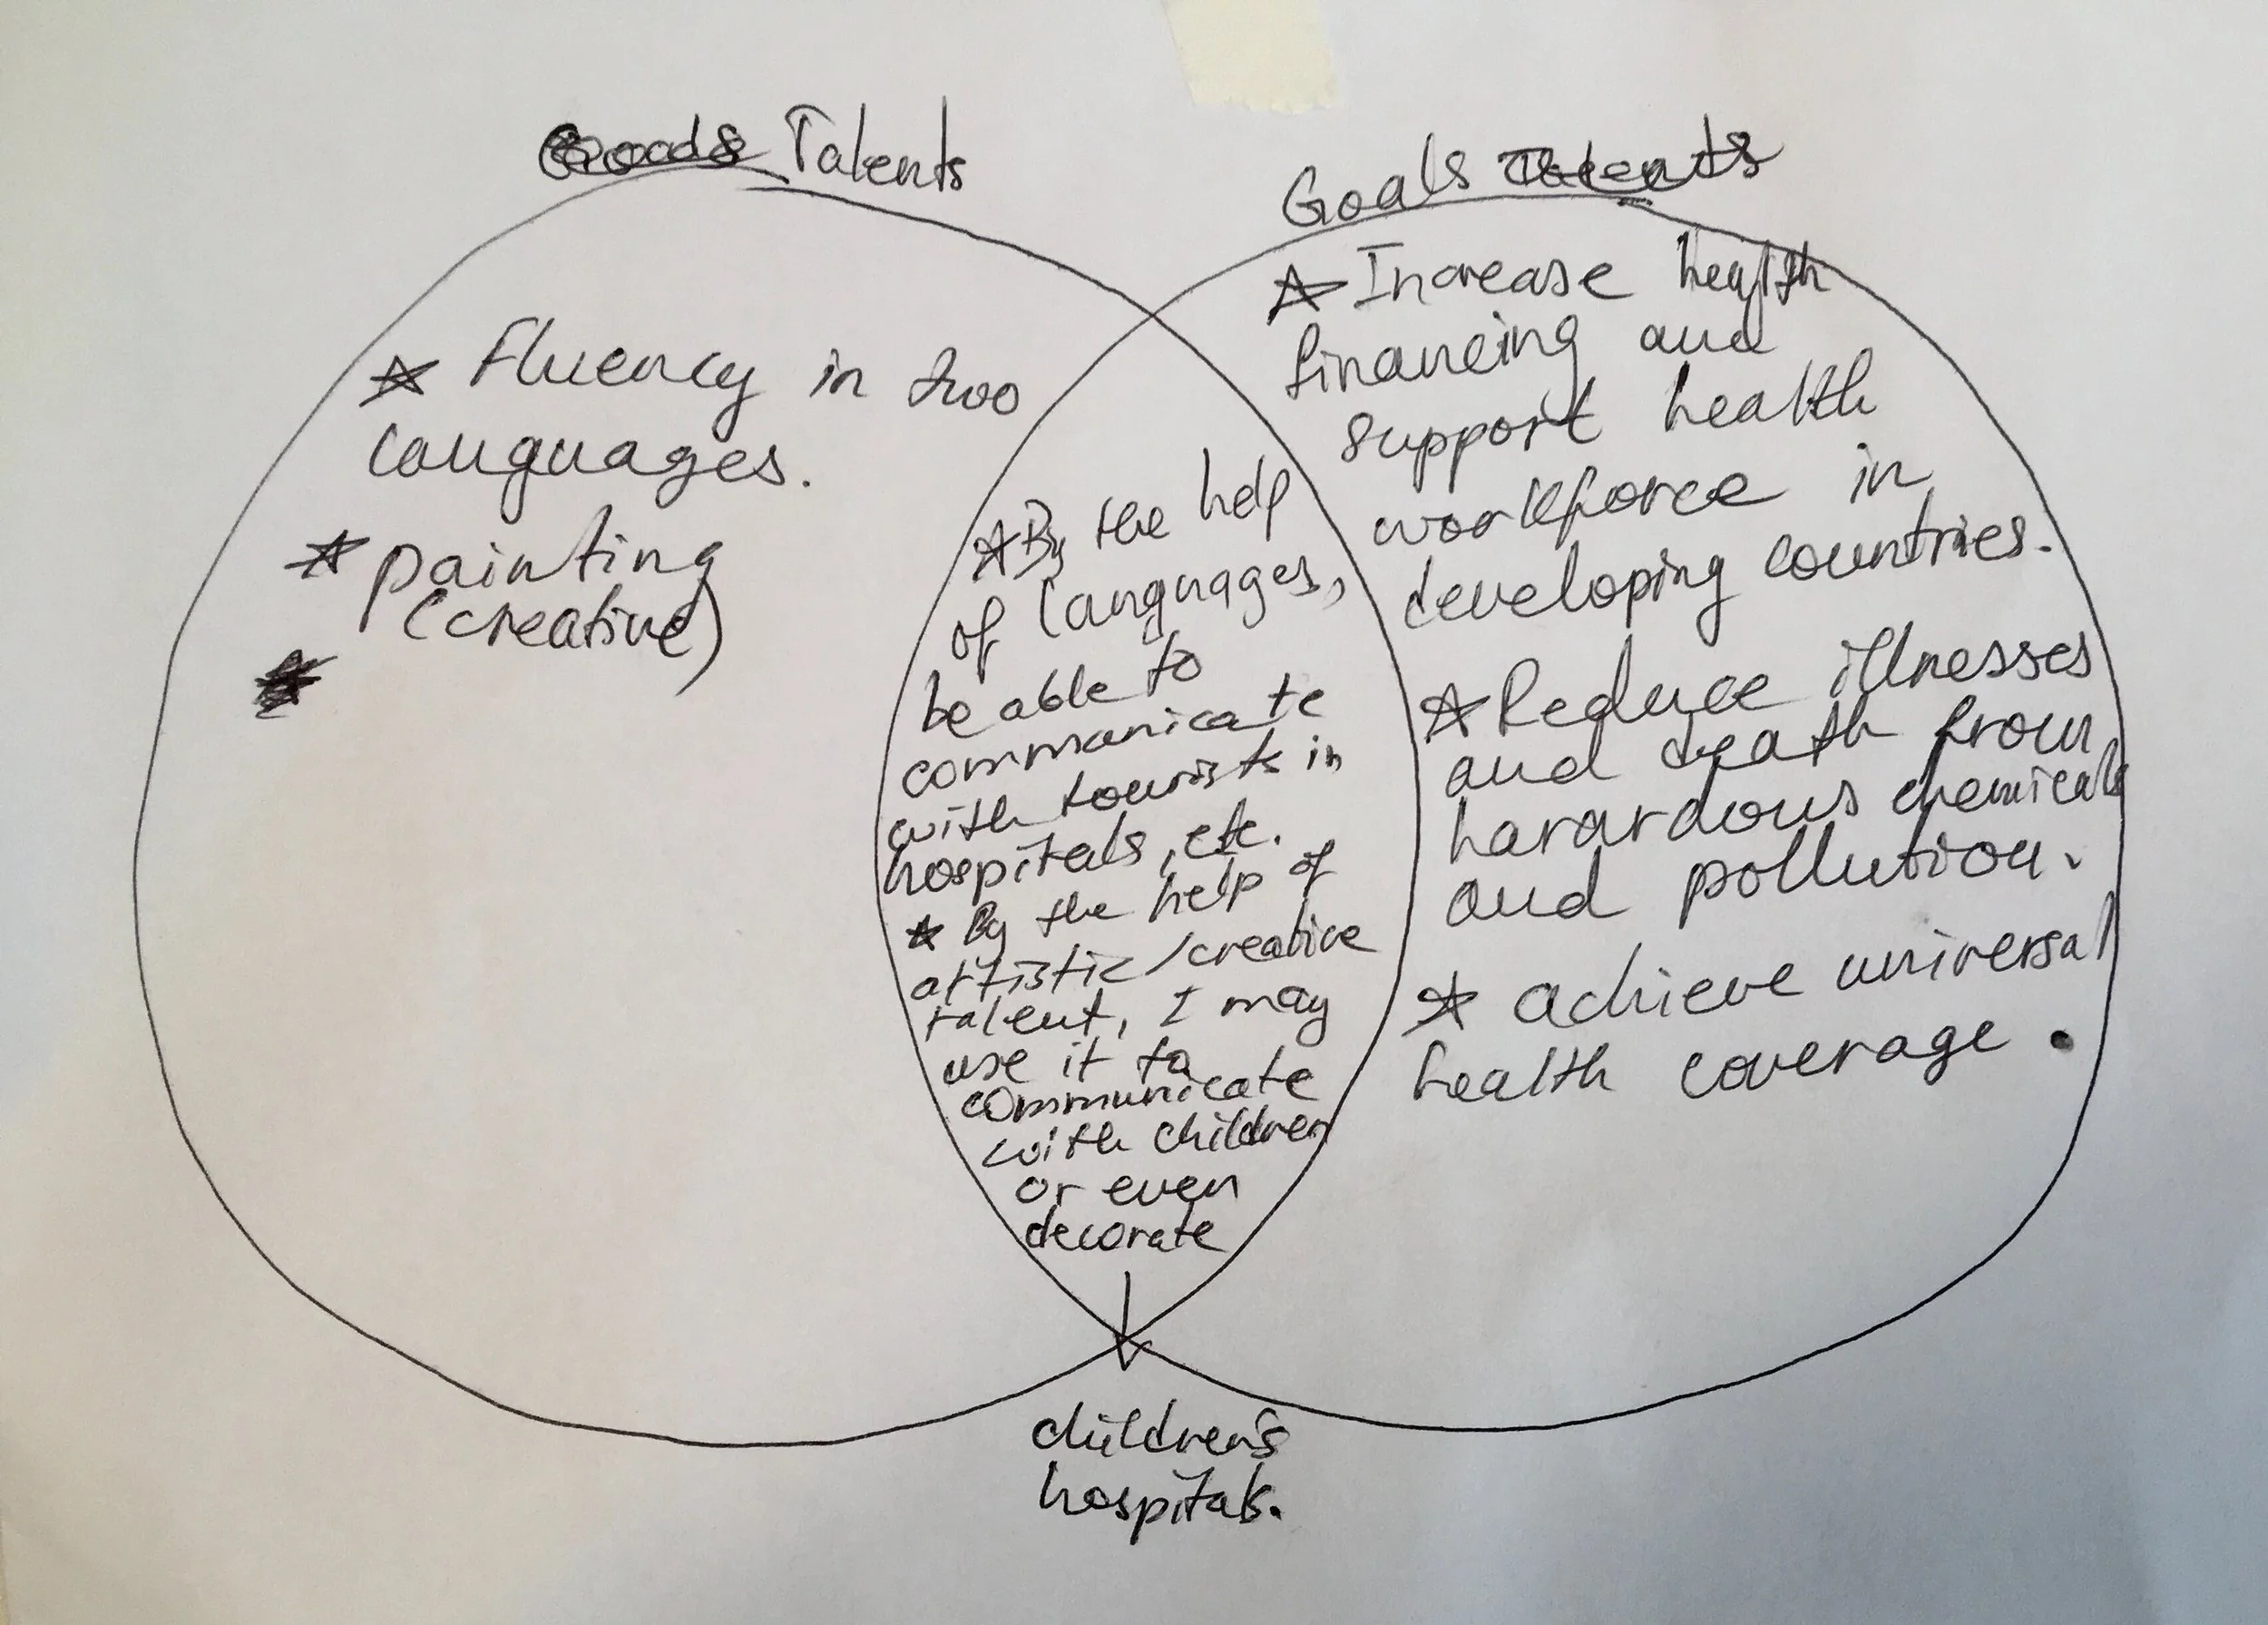 Goods Talents
Goals Talents
Fluency in two
languages.
painting
(creative)
By the help
of languages,
be able to
communicate
with tourists in
hospitals, etc.
By the help of
artistic/creative
talent, I may
use it to
communicate
with children
or even
decorate
children's
hospitals.
Increase health
financing and
support health
workforce in
developing countries.
Reduce illnesses
and death from
harardous chemicals
and pollution.
achieve universal
health coverage.